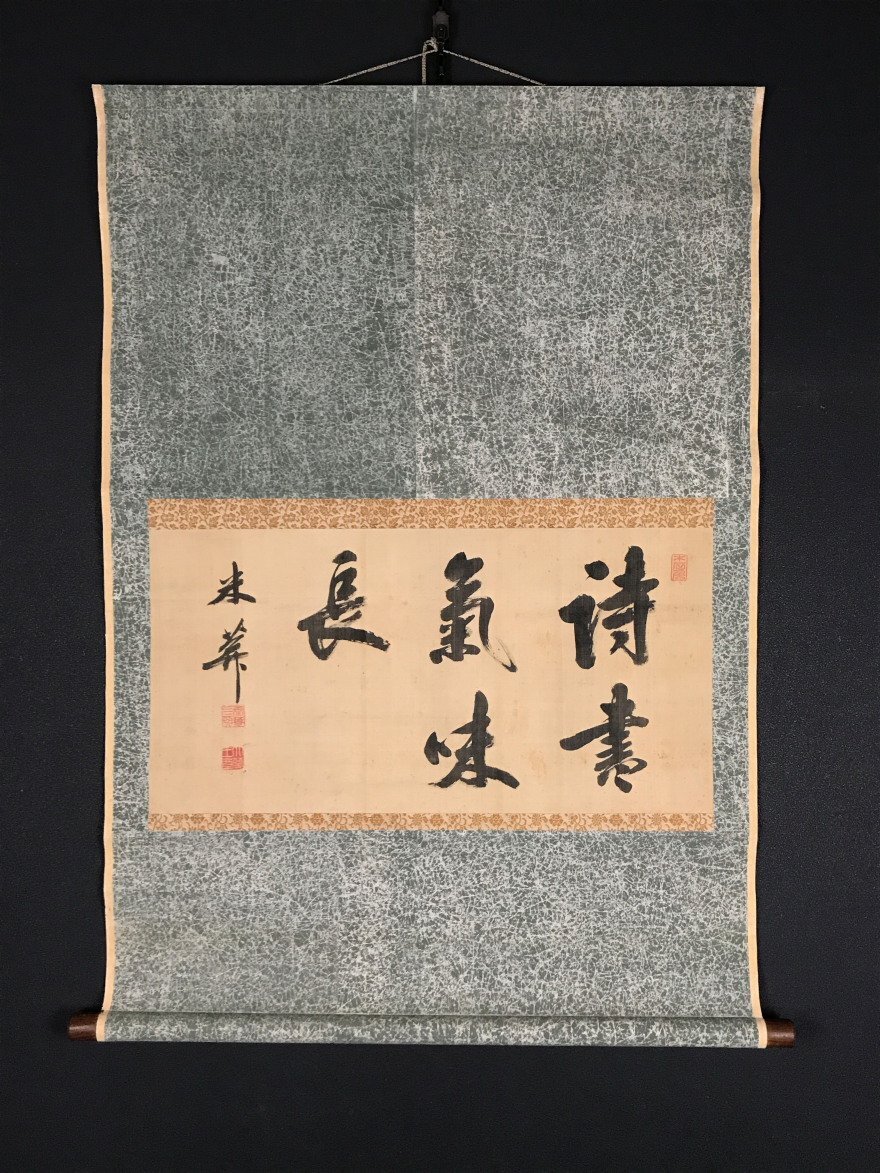 詩書
氣味
長
米葊